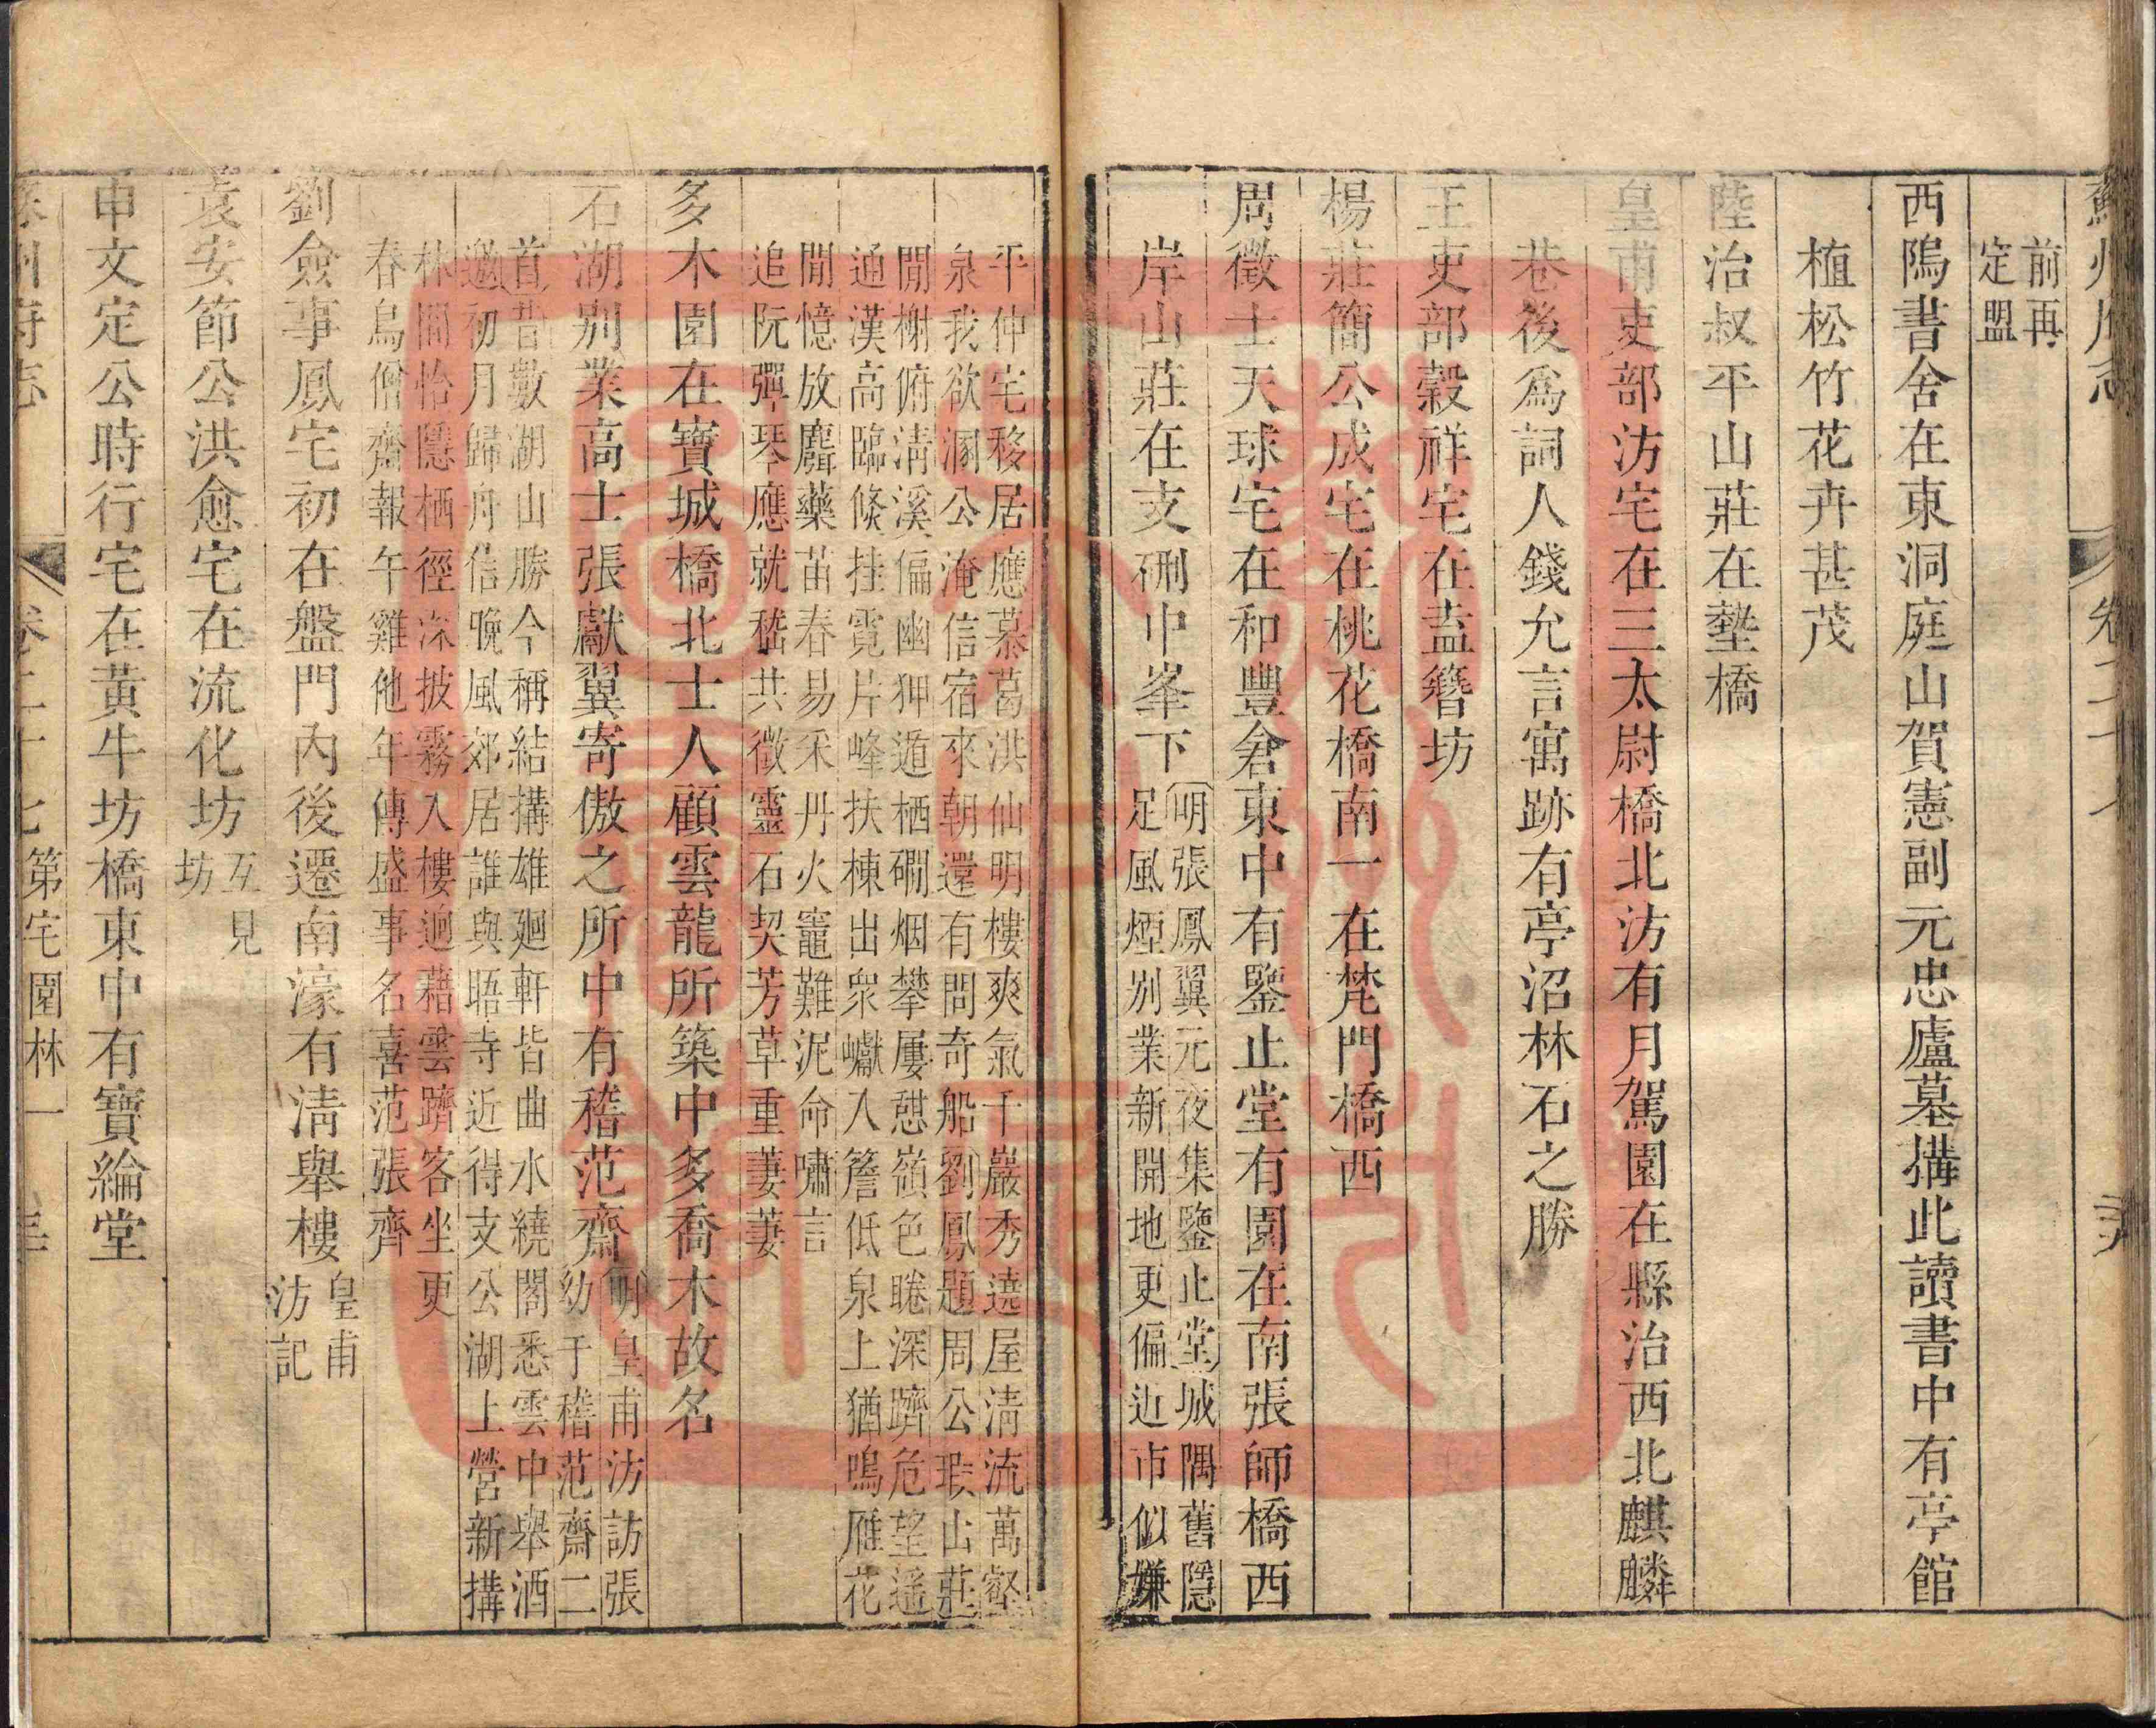 蘇州府志
卷二十七
前再
定盟
西隝書舍在東洞庭山賀憲副元忠廬墓搆此讀書中有亭館
植松竹花卉甚茂
陸治叔平山莊在塾橋
皇甫吏部汸宅在三太尉橋北汸有月駕園在縣治西北麒麟
巷後爲詞人錢允言寓跡有亭沼林石之勝
王吏部穀祥宅在盍簪坊
楊莊簡公成宅在桃花橋南一在梵門橋西
周徵士天球宅在和豐倉東中有鑒止堂有園在南張師橋西
岸山莊在支硎中峯下
明張鳳翼元夜集鑒止堂城隅舊隱
足風煙別業新開地更偏近市似嫌
平仲宅移居應慕葛洪仙明樓爽氣千巖秀遶屋淸流萬壑
泉我欲溷公淹信宿來朝還有問奇船劉鳳題周公瑕山莊
閒榭俯淸溪偏幽狎遁栖磵烟攀屢憇嶺色睠深躋危望遥
通漢高臨倏挂霓片峰扶棟出衆巘入簷低泉上猶鳴雁花
閒憶放麛藥苗春易采丹火竈難泥命嘯言
追阮彈琴應就嵇共徵靈石契芳草重萋萋
多木園在寶城橋北士人顧雲龍所築中多喬木故名
石湖别業高士張獻翼寄傲之所中有稽范齋
明皇甫汸訪張
幼于稽范齋二
首昔數湖山勝今稱結搆雄廻軒皆曲水繞閣悉雲中舉酒
邀初月歸舟信晚風郊居誰與晤寺近得支公湖上營新搆
林間怡隱栖徑深披霧入樓逈藉雲躋客坐更
春鳥僧齋報午雞他年傳盛事名喜范張齊
劉僉事鳳宅初在盤門內後遷南濠有淸舉樓
皇甫
汸記
袁安節公洪愈宅在流化坊
互見
坊
申文定公時行宅在黃牛坊橋東中有寶綸堂
蘇州府志
卷二十七
第宅園林一